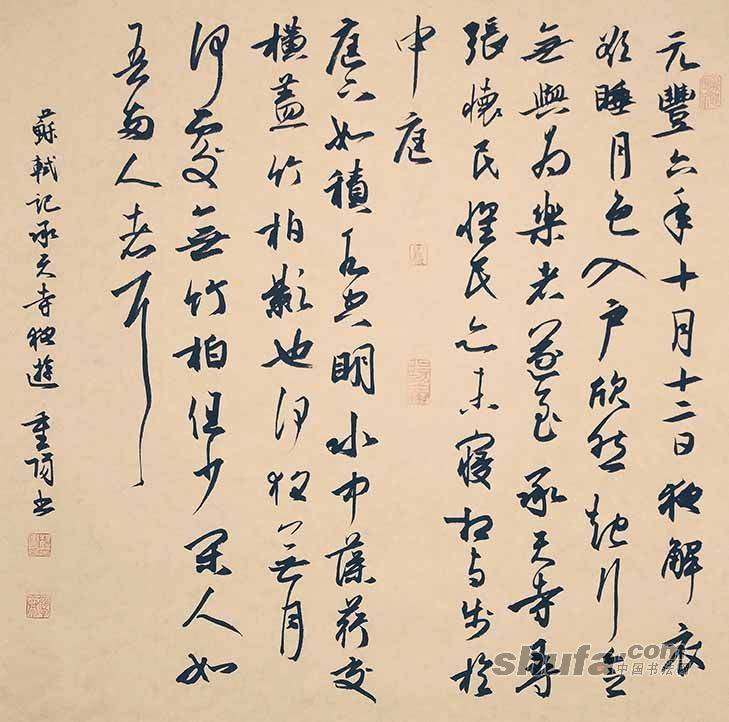 元豐六年十月十二日夜解衣
欲睡月色入户欣然起行念
無與為樂者遂至承天寺尋
張懷民懷民亦未寢相与步於
中庭
庭下如積水空明水中藻荇交
橫蓋竹柏影也何夜無月
何處無竹柏但少閑人如
吾兩人者耳
蘇軾記承天寺夜遊 重陽书
shufa.com
中国书法网